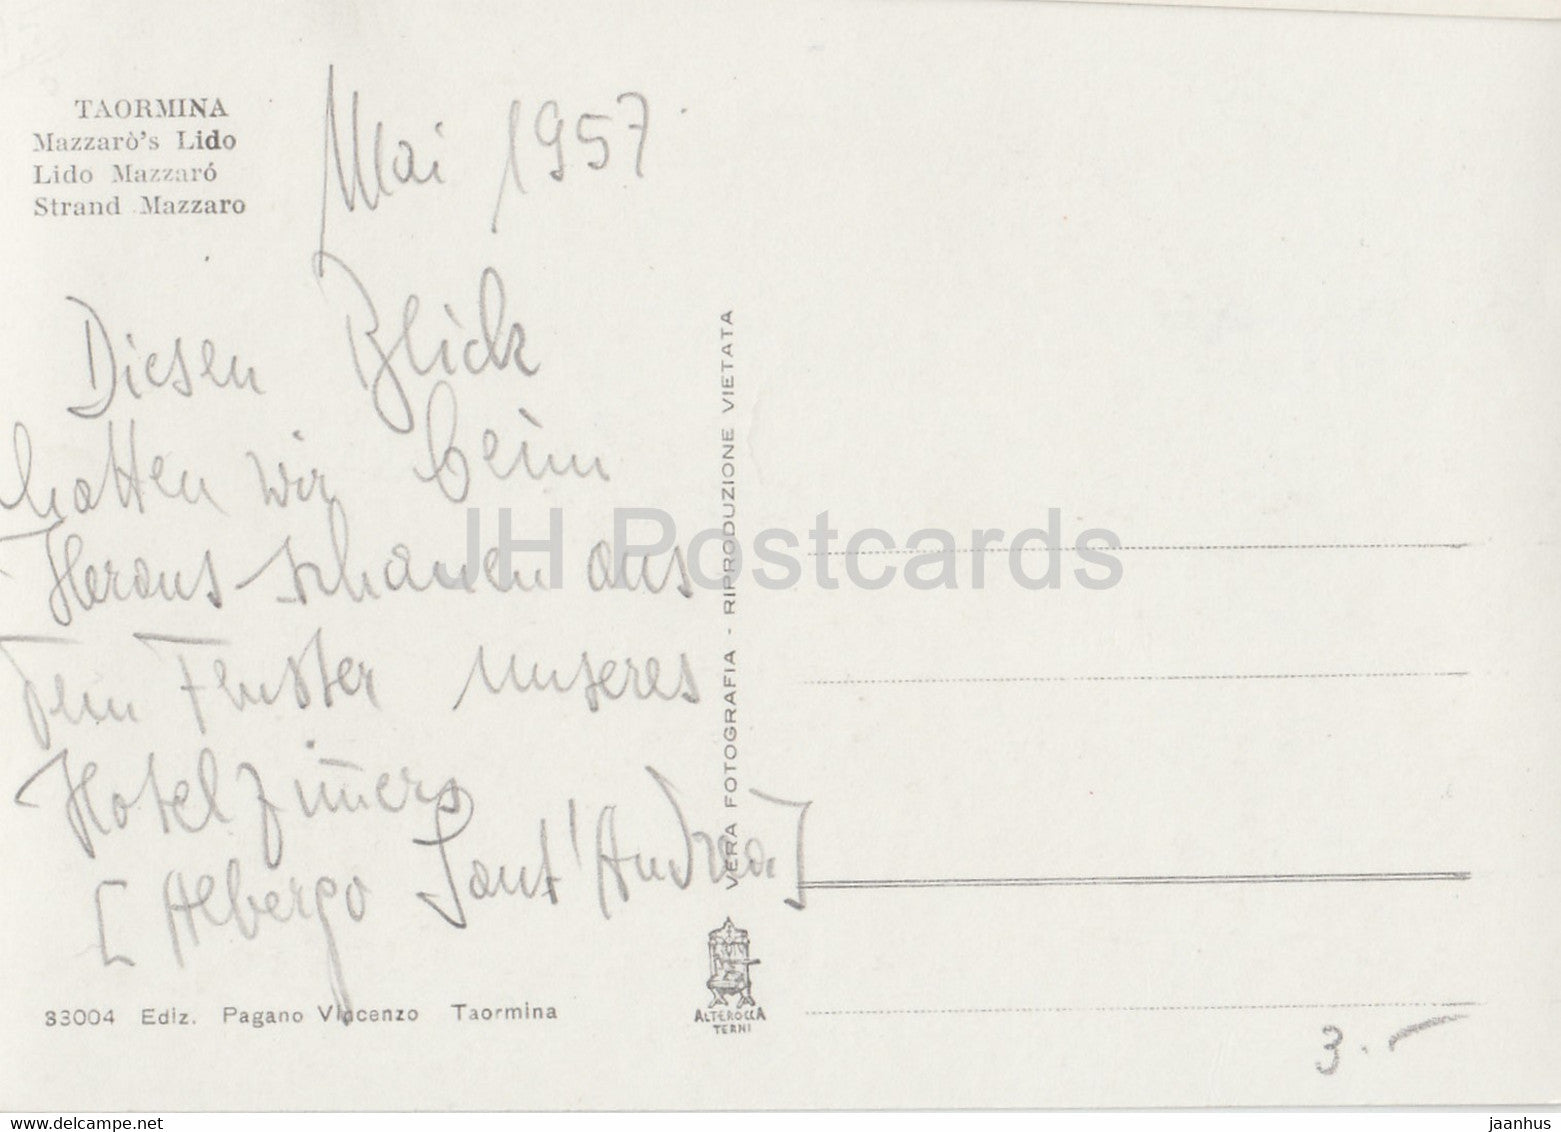 TAORMINA
Mazzarò's Lido
Lido Mazzaró
Strand Mazzaro
Mai 1957
Diesen Blick
hatten wir beim
Heraus-schauen aus
dem Fenster unseres
Hotelzim̅ers
[Albergo Sant'Andrea]
33004 Ediz. Pagano Vincenzo Taormina
VERA FOTOGRAFIA - RIPRODUZIONE VIETATA
ALTEROCCA
TERNI
3.-
JH Postcards
www.delcampe.net
jaanhus